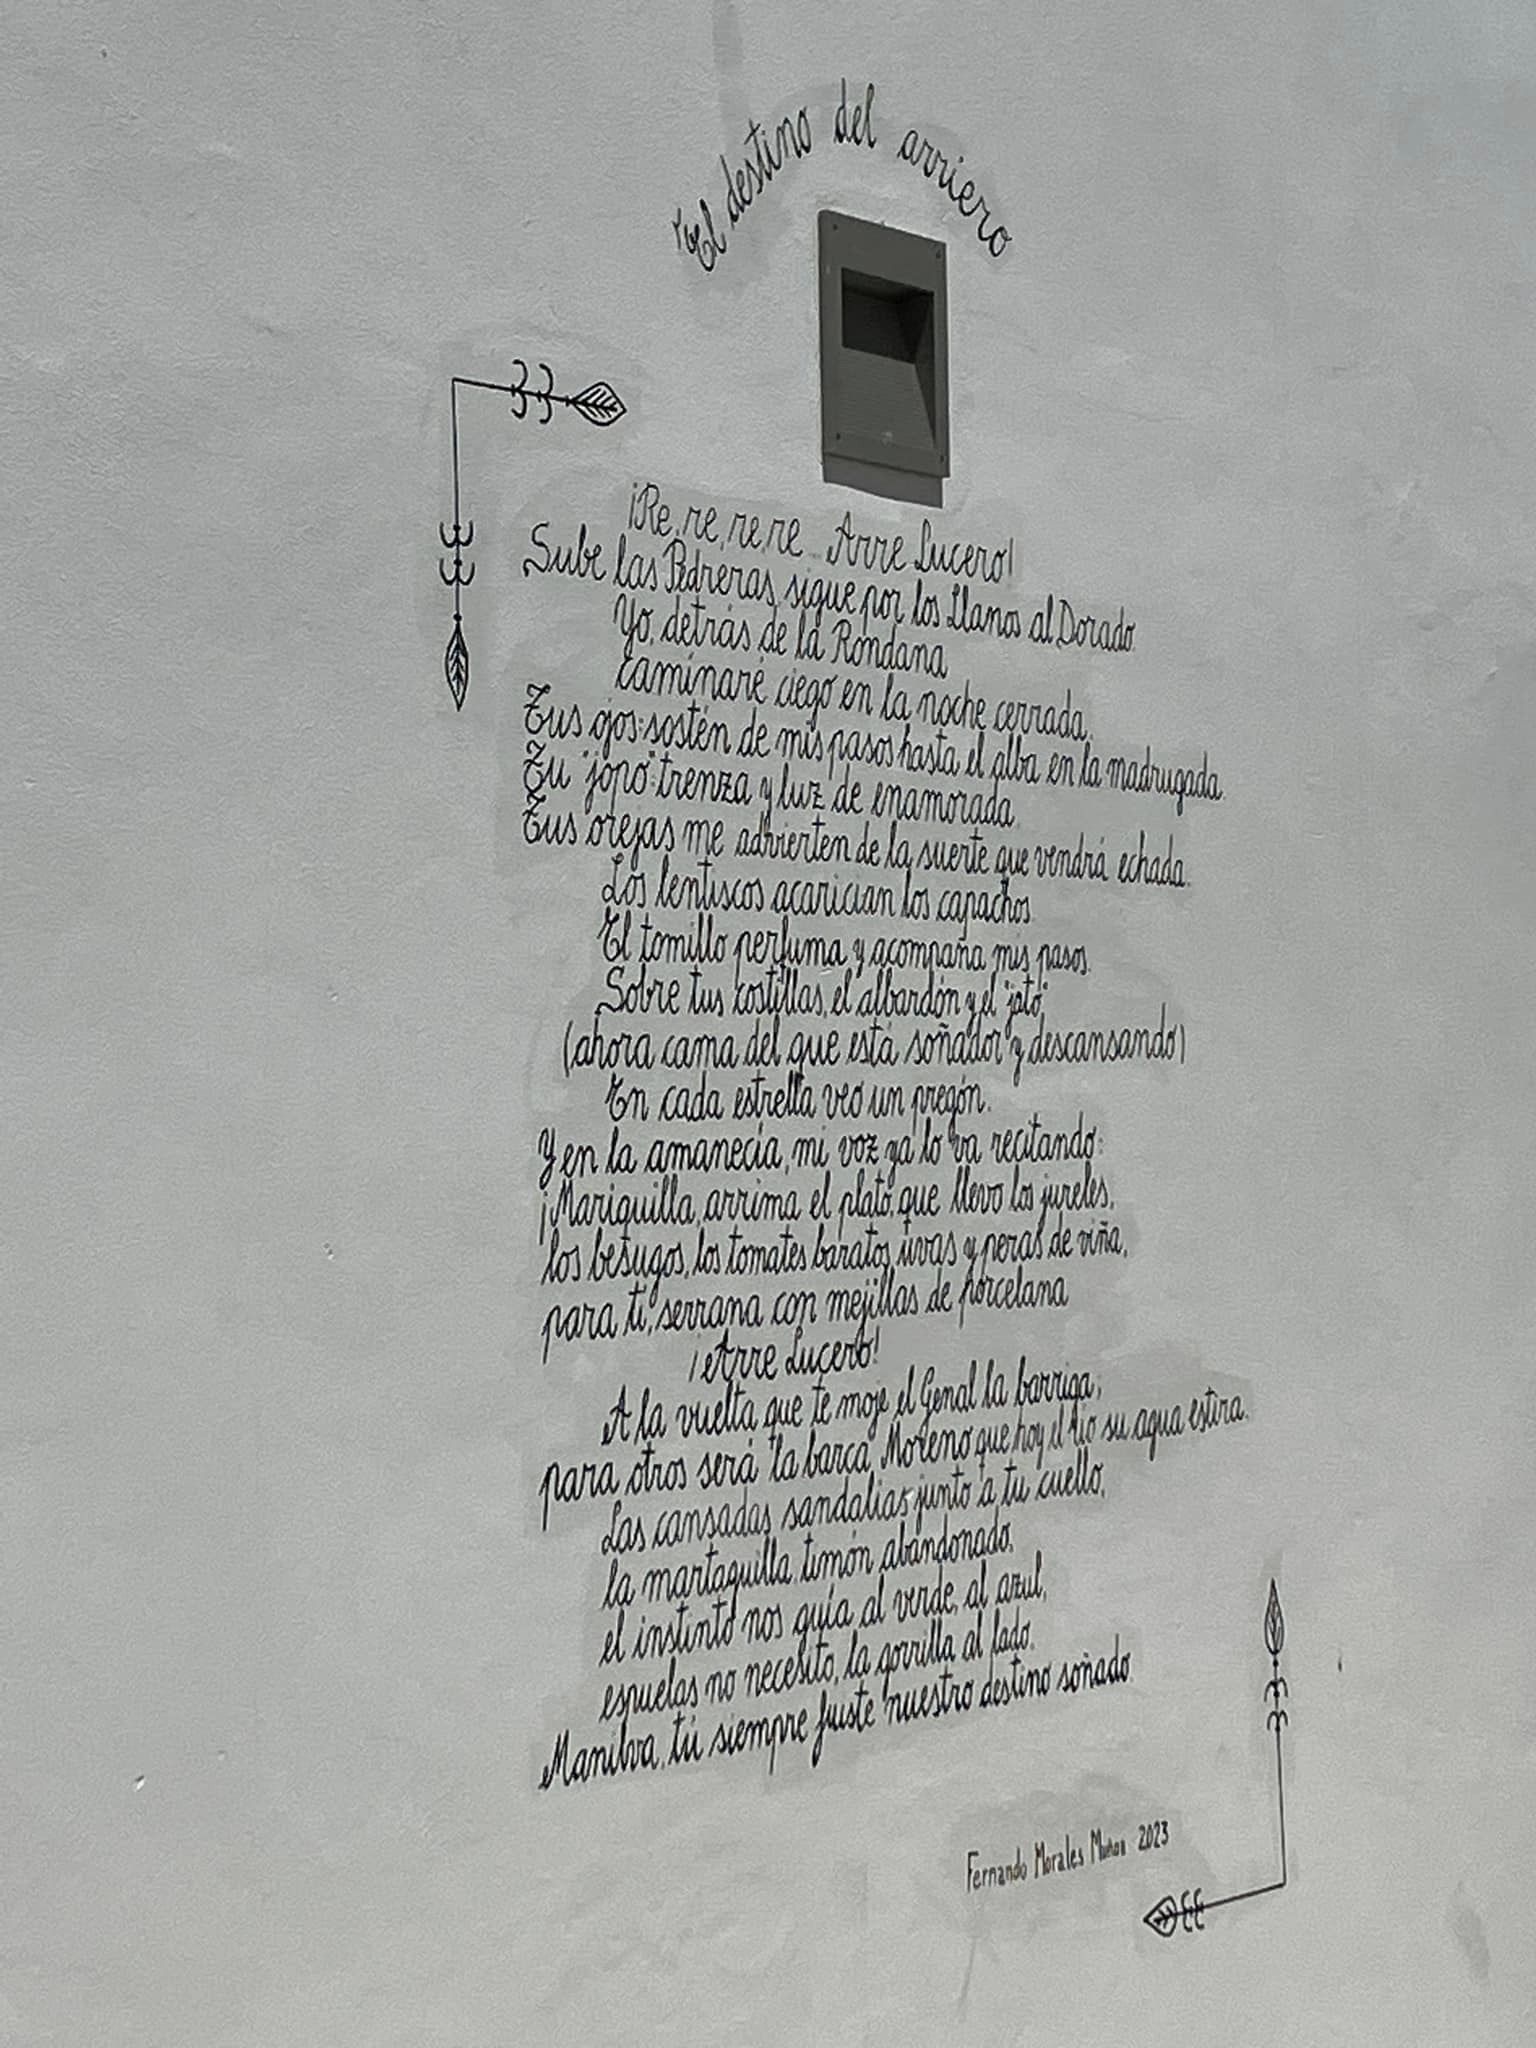 El destino del arriero
¡Re, re, re, re... Arre Lucero!
Sube las Pedreras, sigue por los Llanos al Dorado.
Yo, detrás de la Rondana
caminaré ciego en la noche cerrada.
Tus ojos: sostén de mis pasos hasta el alba en la madrugada.
Tu "jopo": trenza y luz de enamorada.
Tus orejas me advierten de la suerte que vendrá echada.
Los lentiscos acarician los capachos.
El tomillo perfuma y acompaña mis pasos.
Sobre tus costillas, el albardón y el "jato",
(ahora cama del que está soñador y descansando)
En cada estrella veo un pregón.
Y en la amanecía, mi voz ya lo va recitando:
¡Mariquilla, arrima el plato, que llevo los jureles,
los besugos, los tomates baratos, uvas y peras de viña,
para ti, serrana con mejillas de porcelana
¡Arre Lucero!
A la vuelta que te moje el Genal la barriga,
para otros será la barca, Moreno que hoy el río su agua estira.
Las cansadas sandalias junto a tu cuello,
la martaguilla, timón abandonado,
el instinto nos guía al verde, al azul,
espuelas no necesito, la gorrilla al lado.
Manilva, tú siempre fuiste nuestro destino soñado.
Fernando Morales Muñoz 2023